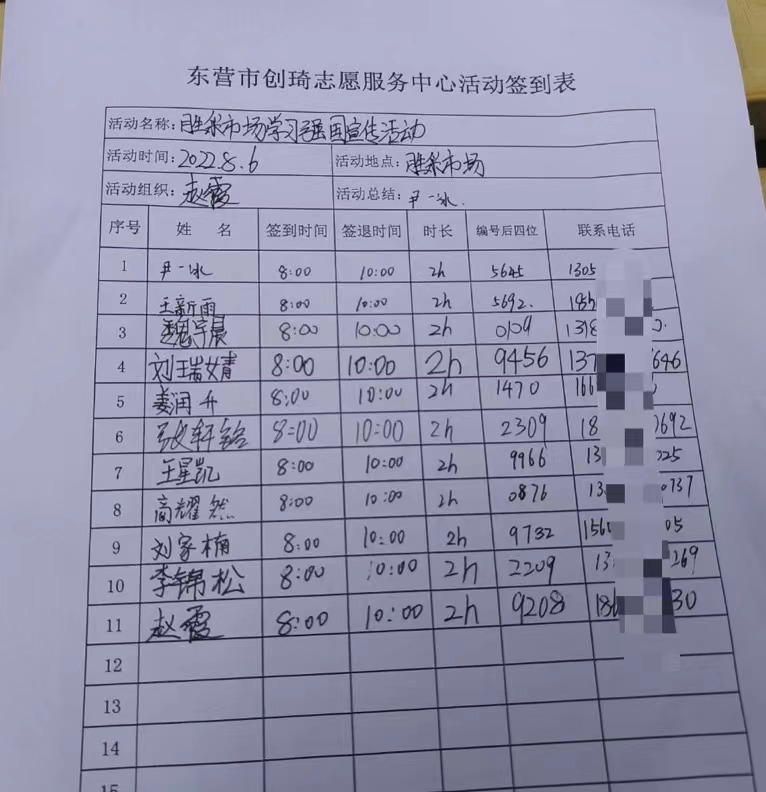 东营市创琦志愿服务中心活动签到表
活动名称：胜采市场学习强国宣传活动
活动时间：2022.8.6 活动地点：胜采市场
活动组织：赵霞 活动总结：尹一冰.
序号 姓 名 签到时间 签退时间 时长 编号后四位 联系电话
1 尹一冰 8:00 10:00 2h 5645 1305
2 王新雨 8:00 10:00 2h 5692. 185
3 魏宇晨 8:00 10:00 2h 0109 1318 0.
4 刘瑞婧 8:00 10:00 2h 9456 137 646
5 姜润升 8:00 10:00 2h 1470 166
6 张轩铭 8:00 10:00 2h 2309 18 0692
7 王星凯 8:00 10:00 2h 9966 13 025
8 高耀然 8:00 10:00 2h 0876 13 0737
9 刘家楠 8:00 10:00 2h 9732 156 05
10 李锦松 8:00 10:00 2h 2209 13 269
11 赵霞 8:00 10:00 2h 9208 186 30
12
13
14
15